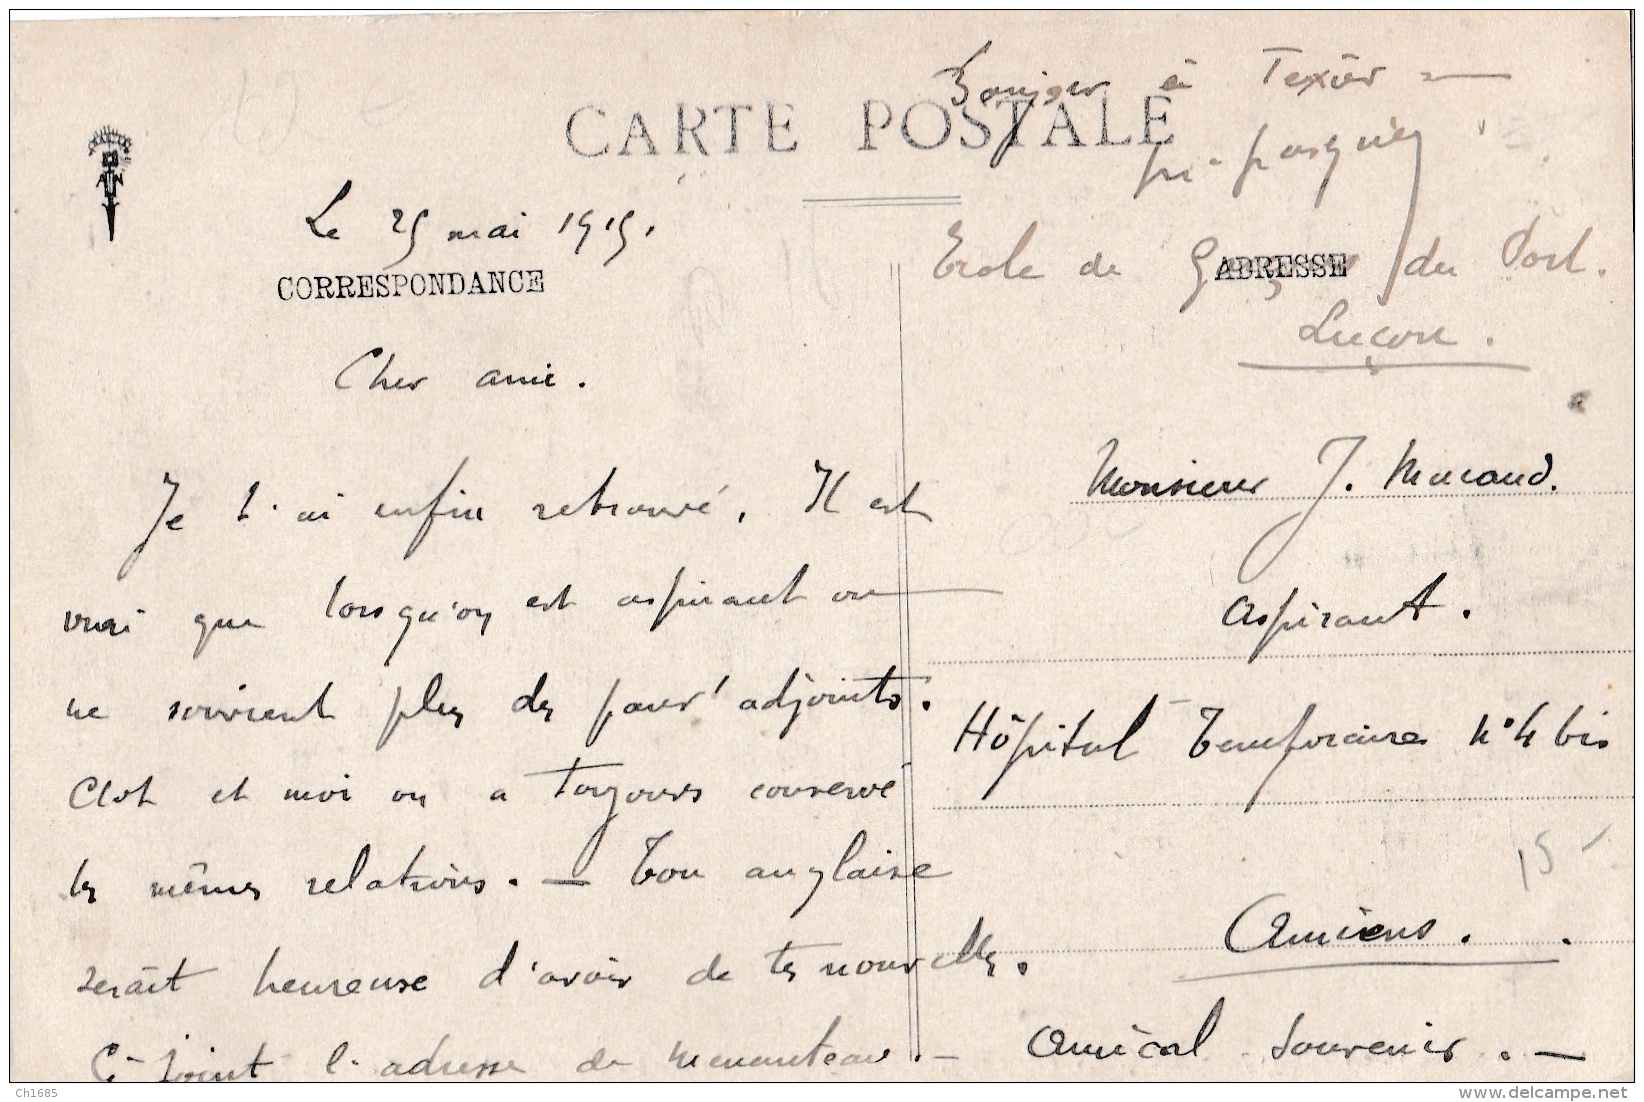 CARTE POSTALE
Bonjour à Texier
Ecole de du Port.
Luçon.
Le 25 mai 1915.
CORRESPONDANCE
ADRESSE
Cher ami.
Je t'ai enfin retrouvé. Il est
vrai que lorsqu'on est aspirant on
ne souvient plus des pauv' adjoints.
Clot et moi on a toujours conservé
les mêmes relations. — Ton anglaise
serait heureuse d'avoir de tes nouvelles.
Ci-joint l'adresse de —
Monsieur J. Marcaud.
Aspirant.
Hôpital Temporaire N° 4 bis
15
Amiens.
Amical Souvenir. —
Ch1685
www.delcampe.net